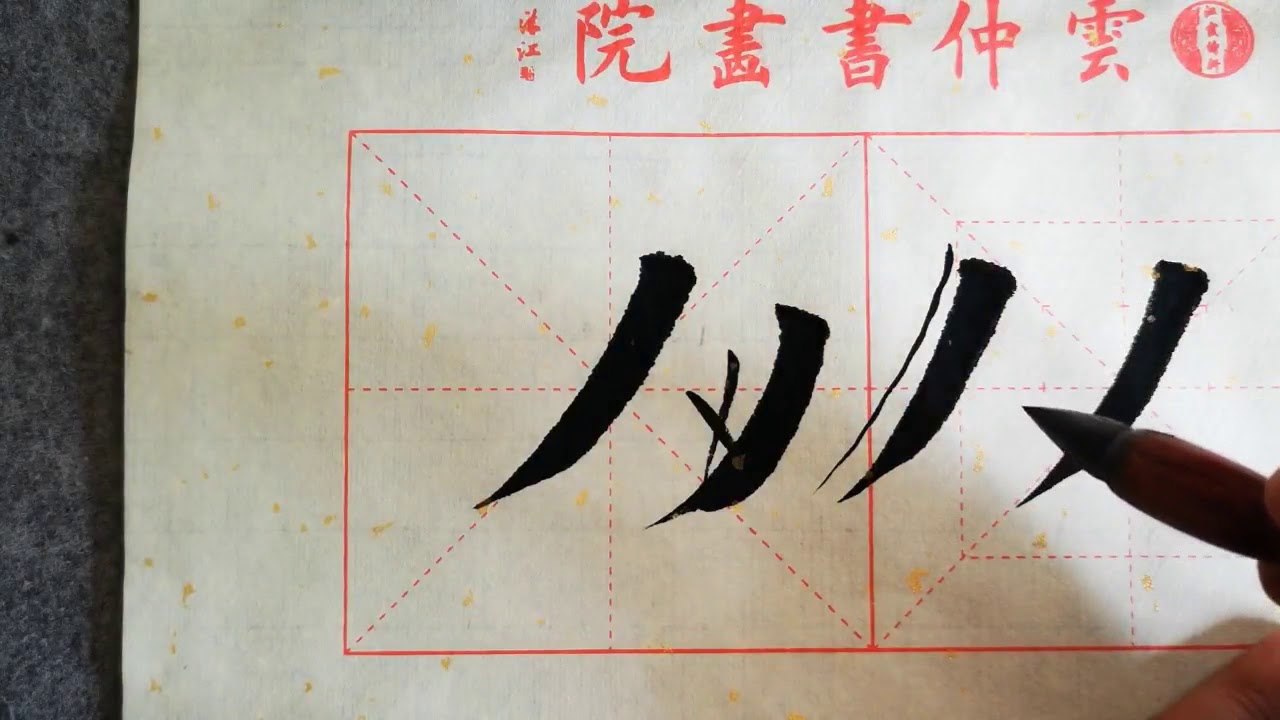 雲仲書畫院